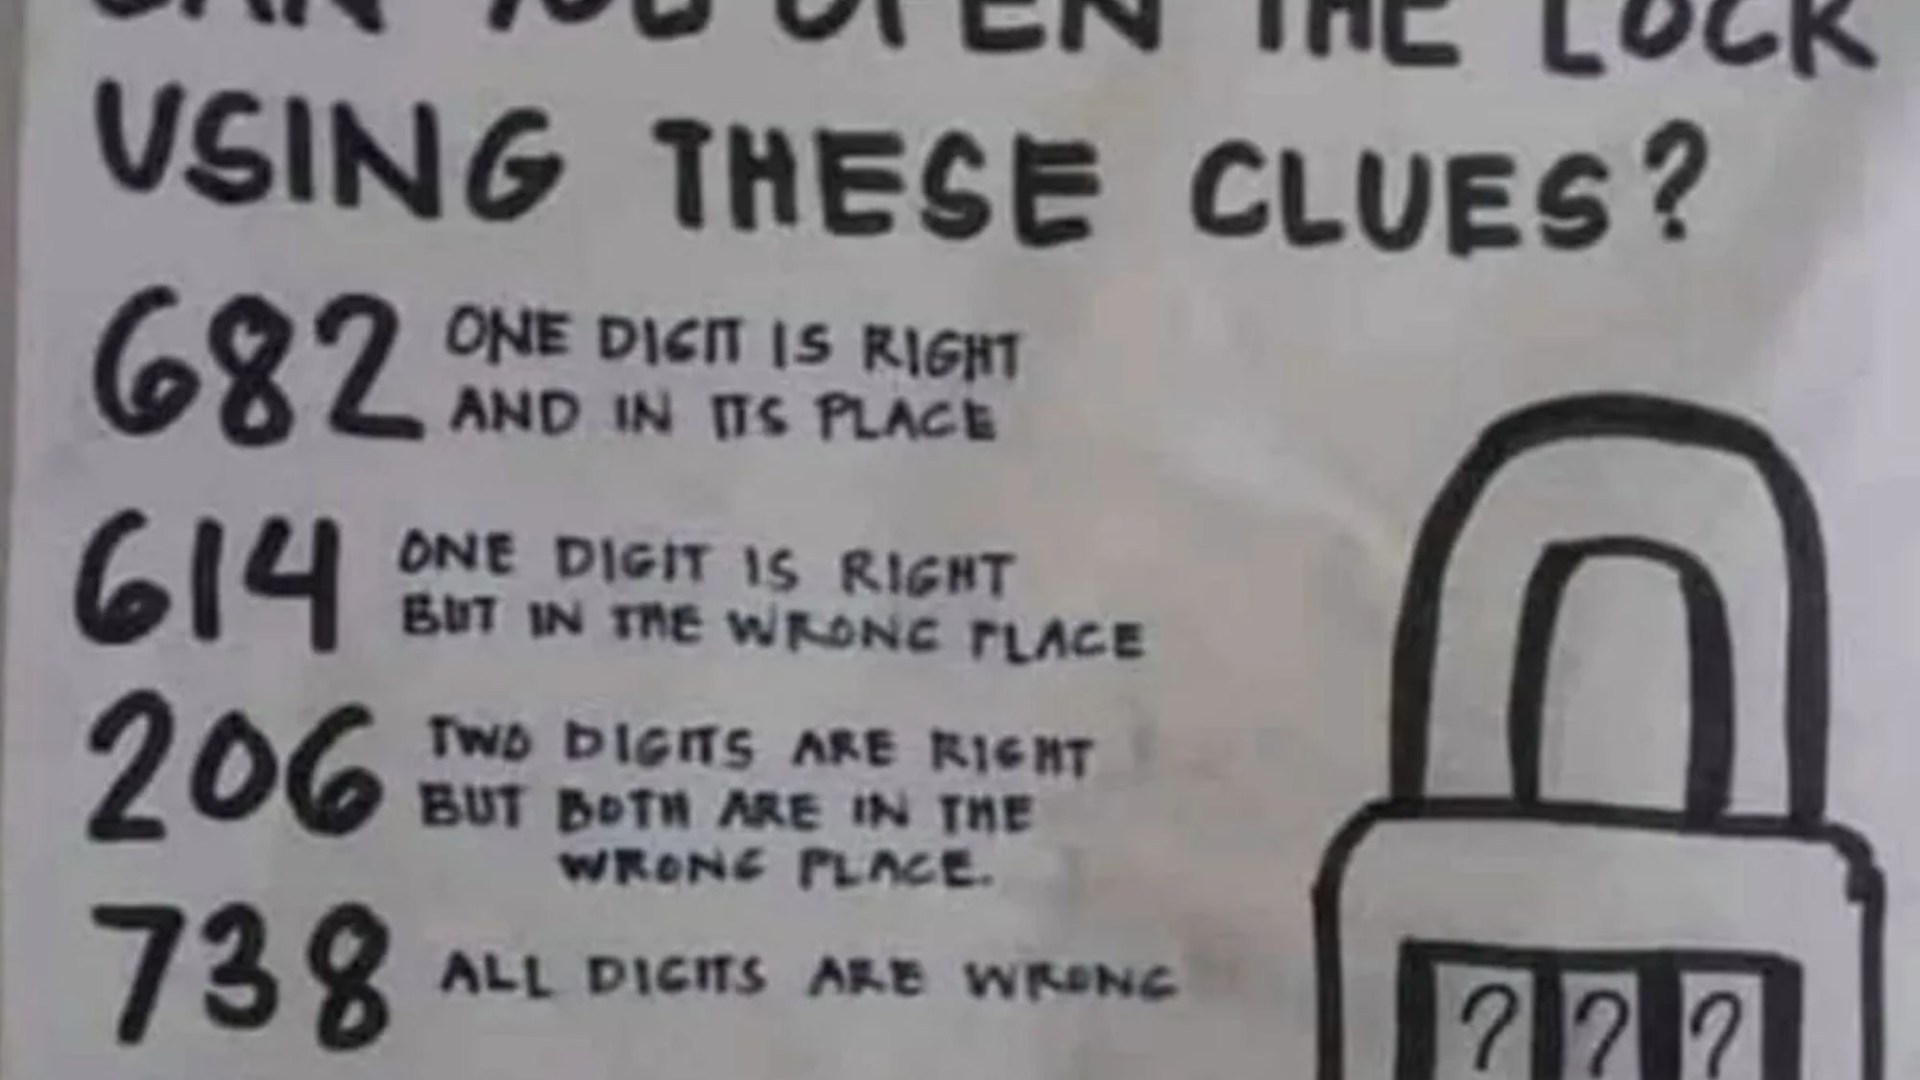 CAN YOU OPEN THE LOCK
USING THESE CLUES?
682 ONE DIGIT IS RIGHT
AND IN ITS PLACE
614 ONE DIGIT IS RIGHT
BUT IN THE WRONG PLACE
206 TWO DIGITS ARE RIGHT
BUT BOTH ARE IN THE
WRONG PLACE.
738 ALL DIGITS ARE WRONG
? ? ?